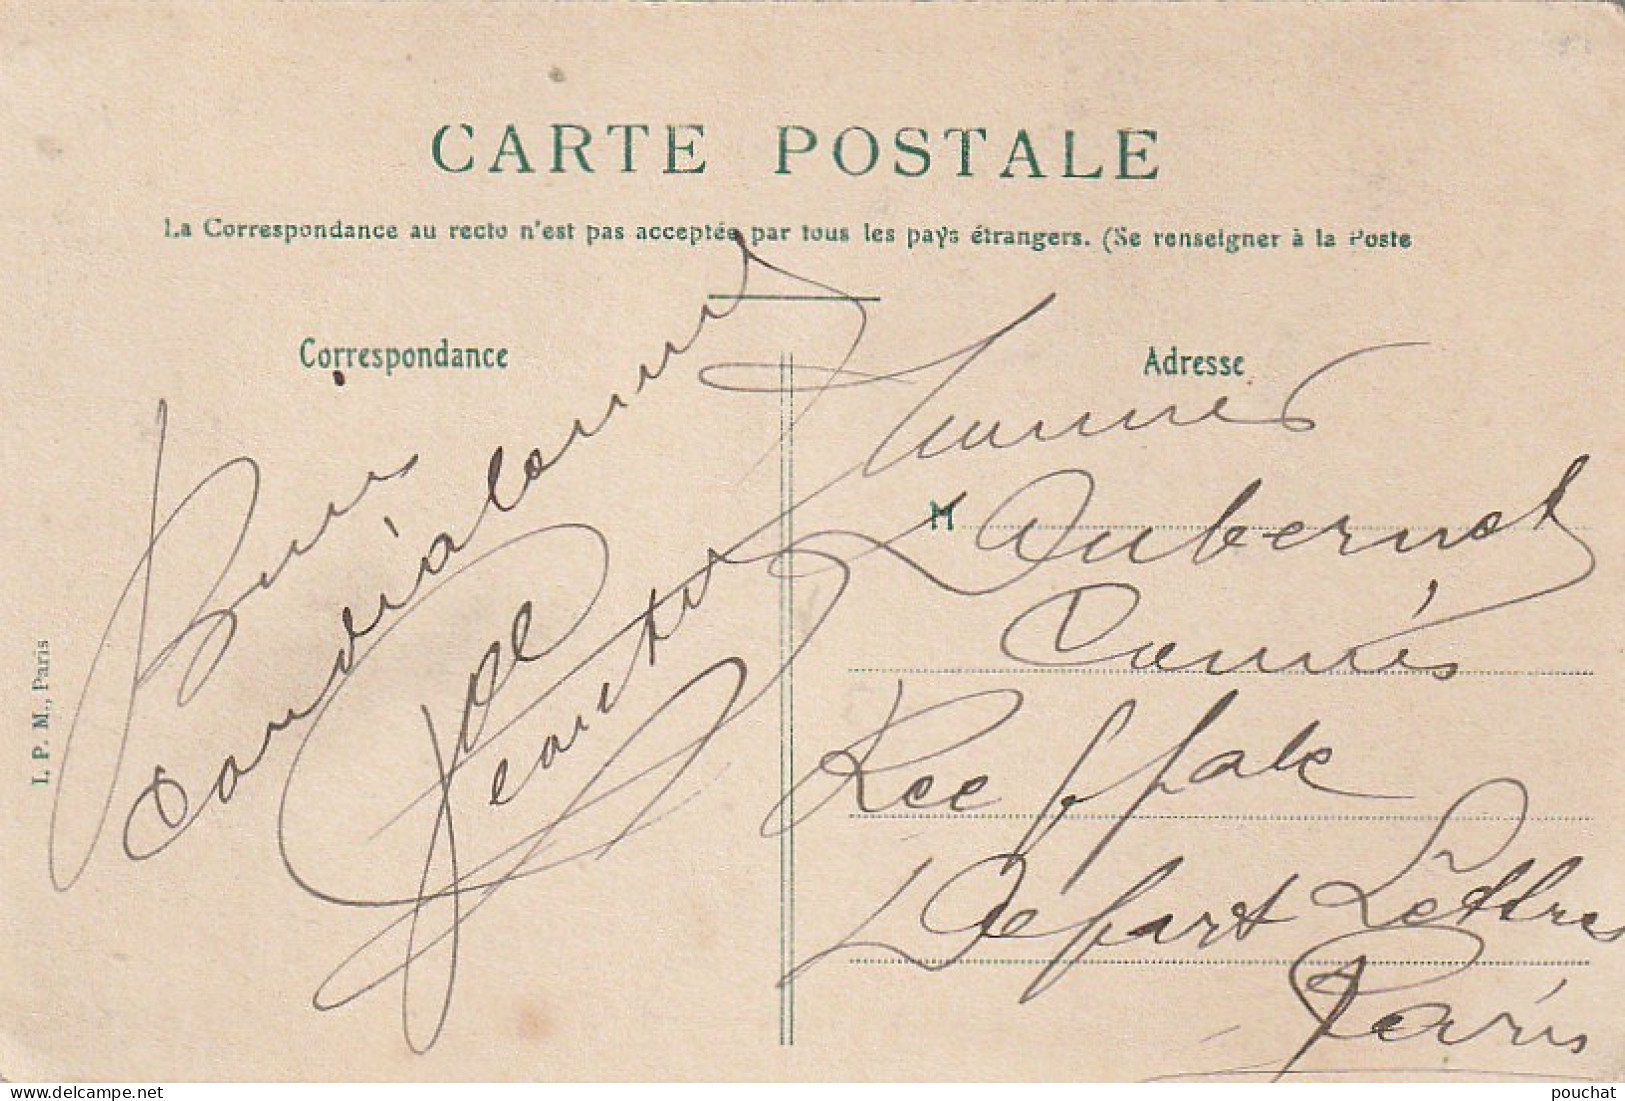 CARTE POSTALE
La Correspondance au recto n'est pas acceptée par tous les pays étrangers. (Se renseigner à la Poste
Correspondance
Bien
cordialement
Adresse
M Dubernet
Commis
Rce ppale
Départ Lettres
Paris
I. P. M., Paris
pouchat